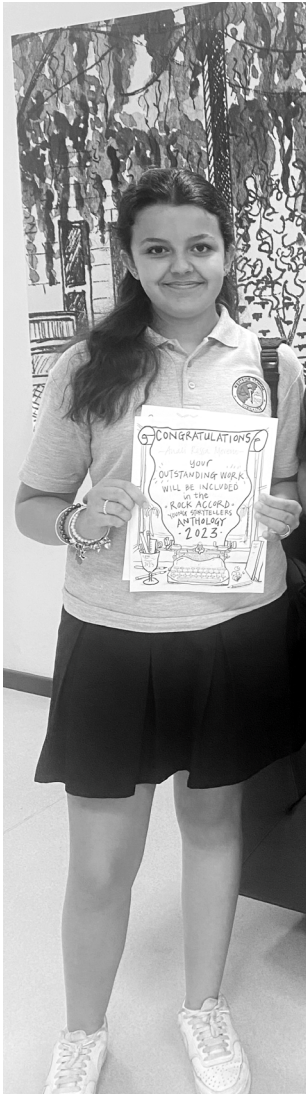 CONGRATULATIONS
your
OUTSTANDING WORK
WILL BE INCLUDED
in the
ROCK ACCORD
YOUNG STORYTELLERS
ANTHOLOGY
·2023·